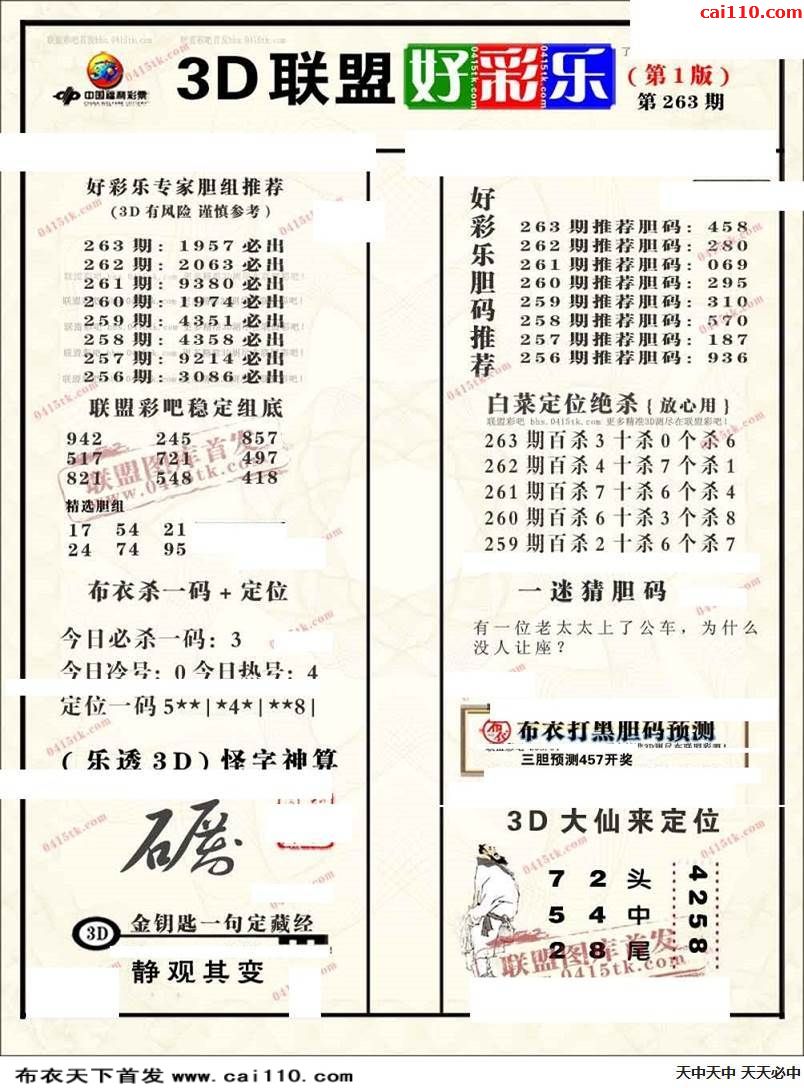 cai110.com
3D联盟好彩乐
(第1版)
第263期
中国福利彩票
CHINA WELFARE LOTTERY
好彩乐专家胆组推荐
(3D有风险 谨慎参考)
263期:1957必出
262期:2063必出
261期:9380必出
260期:1974必出
259期:4351必出
258期:4358必出
257期:9214必出
256期:3086必出
联盟彩吧稳定组底
942 245 857
517 721 497
821 548 418
联盟图库首发
www.0415tk.com
精选胆组
17 54 21
24 74 95
布衣杀一码+定位
今日必杀一码:3
今日冷号:0今日热号:4
定位一码5**|*4*|**8|
(乐透3D)怪字神算
3D 金钥匙一句定藏经
静观其变
好彩乐胆码推荐
263期推荐胆码:458
262期推荐胆码:280
261期推荐胆码:069
260期推荐胆码:295
259期推荐胆码:310
258期推荐胆码:570
257期推荐胆码:187
256期推荐胆码:936
白菜定位绝杀{放心用}
联盟彩吧 bbs.0415tk.com 更多精准3D测尽在联盟彩吧!
263期百杀3十杀0个杀6
262期百杀4十杀7个杀1
261期百杀7十杀6个杀4
260期百杀6十杀3个杀8
259期百杀2十杀6个杀7
一迷猜胆码
有一位老太太上了公车，为什么
没人让座？
布衣打黑胆码预测
三胆预测457开奖
3D大仙来定位
7 2 头
5 4 中
2 8 尾
4258
联盟图库首发
www.0415tk.com
布衣天下首发 www.cai110.com
天中天中 天天必中